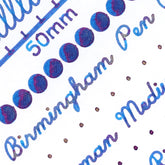 50mm
Birmingham Pen
man Medi